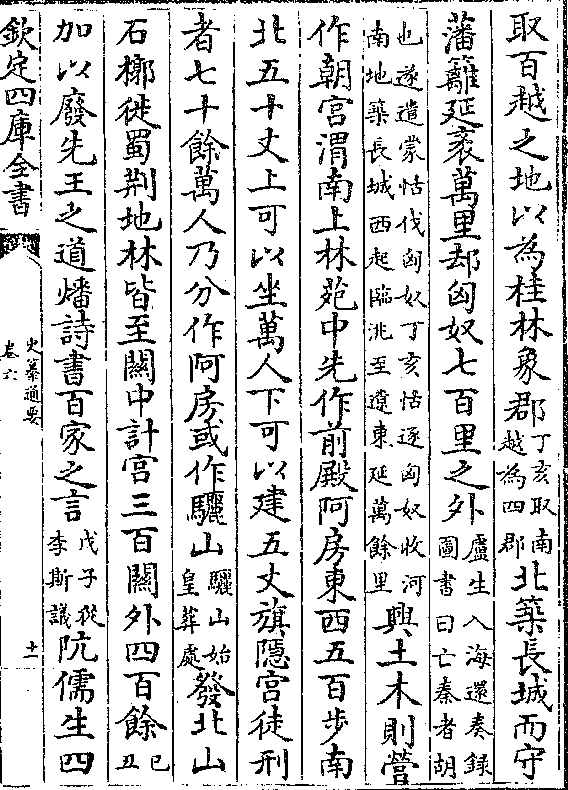 取百越之地以為桂林象郡丁亥取南越為四郡北築長城而守
藩籬延袤萬里却匈奴七百里之外盧生入海還奏録圖書曰亡秦者胡
也遂遣蒙恬伐匈奴丁亥恬逐匈奴收河南地築長城西起臨洮至遼東延萬餘里興土木則營
作朝宫渭南上林苑中先作前殿阿房東西五百步南
北五十丈上可以坐萬人下可以建五丈旗隱宫徒刑
者七十餘萬人乃分作阿房或作驪山驪山始皇葬處發北山
石槨徙蜀荆地林皆至關中計宫三百關外四百餘已丑
加以廢先王之道燔詩書百家之言戊子從李斯議阬儒生四
欽定四庫全書
史纂通要
卷六
十一